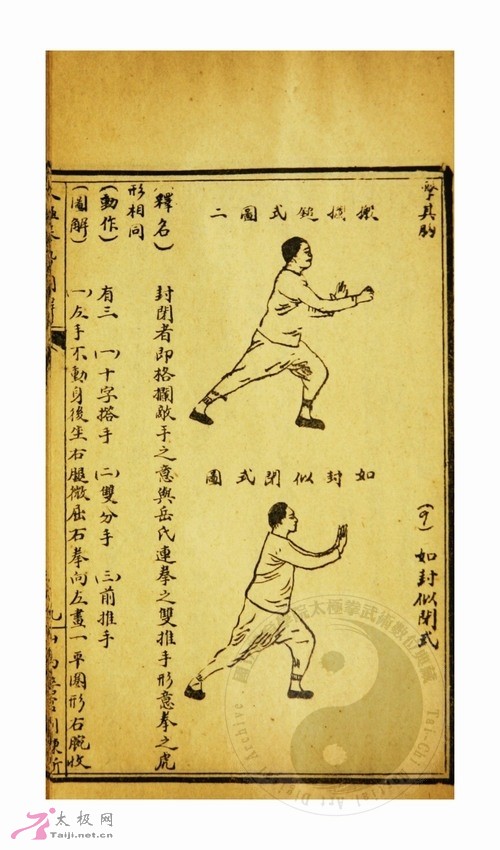 擊其胸
(9) 如封似閉式
搬攔鎚式圖二
如封似閉式圖
(釋名) 封閉者即格攔敵手之意與岳氏連拳之雙推手形意拳之虎
形相同
(動作) 有三 (一)十字搭手 (二)雙分手 (三)前推手
(圖解) (一)左手不動身後坐右腿微屈右拳向左畫一平圓形右腕收
太極拳武術數位典藏
Tai-Chi Art Digital Archive
太极网
Taiji.net.cn